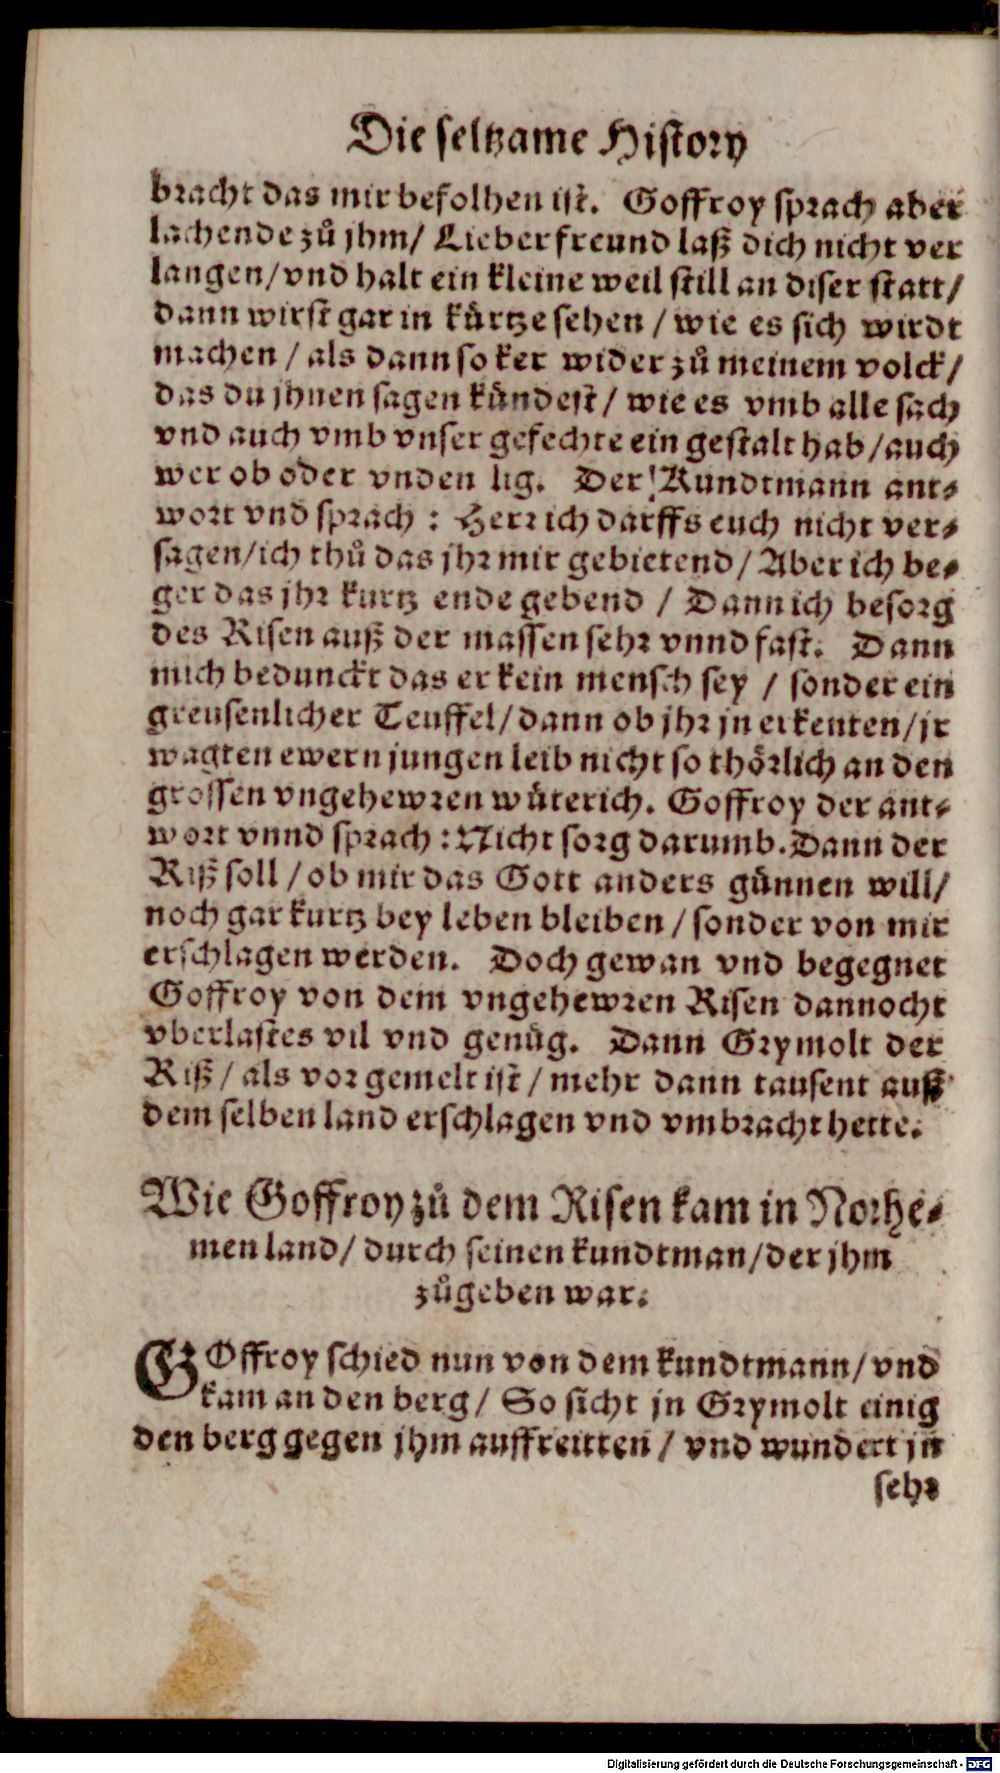 Die seltzame History
bracht das mir befolhen ist. Goffroy sprach aber
lachende zů jhm/ Lieber freund laß dich nicht ver
langen/vnd halt ein kleine weil still an diser statt/
dann wirst gar in kürtze sehen / wie es sich wirdt
machen / als dann so ker wider zů meinem volck/
das du jhnen sagen kündest / wie es vmb alle sach
vnd auch vmb vnser gefechte ein gestalt hab /auch
wer ob oder vnden lig. Der Kundtmann ant⸗
wort vnd sprach : Herr ich darffs euch nicht ver⸗
sagen/ich thů das jhr mir gebietend / Aber ich be⸗
ger das jhr kurtz ende gebend / Dann ich besorg
des Risen auß der massen sehr vnnd fast. Dann
mich bedunckt das er kein mensch sey / sonder ein
greusenlicher Teuffel/ dann ob jhr jn erkenten/jr
wagten ewern jungen leib nicht so thörlich an den
grossen vngehewren wüterich. Goffroy der ant⸗
wort vnnd sprach : Nicht sorg darumb. Dann der
Riß soll / ob mir das Gott anders günnen will/
noch gar kurtz bey leben bleiben / sonder von mir
erschlagen werden. Doch gewan vnd begegnet
Goffroy von dem vngehewren Risen dannocht
vberlastes vil vnd genůg. Dann Grymolt der
Riß / als vor gemelt ist / mehr dann tausent auß
dem selben land erschlagen vnd vmbracht hette.
Wie Goffroy zů dem Risen kam in Norhe⸗
men land/ durch seinen kundtman/der jhm
zůgeben war.
GOffroy schied nun von dem kundtmann/ vnd
kam an den berg / So sicht jn Grymolt einig
den berg gegen jhm auffreitten / vnd wundert jn
sehr
Digitalisierung gefördert durch die Deutsche Forschungsgemeinschaft - DFG